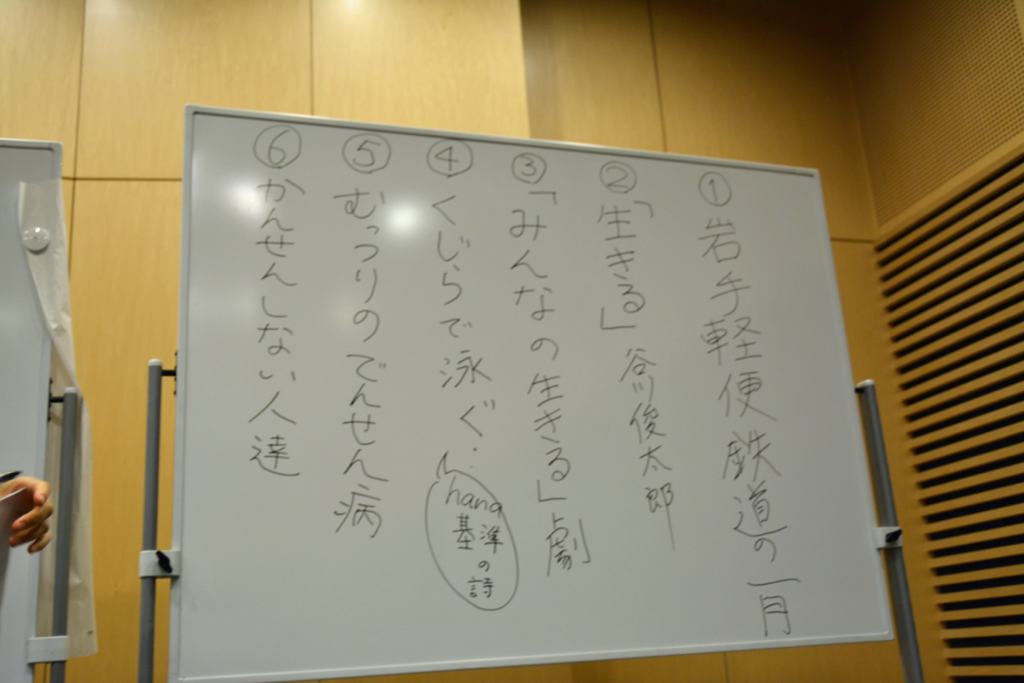 ① 岩手軽便鉄道の一月
② 「生きる」 谷川俊太郎
③ 「みんなの生きる」劇
④ くじらで泳ぐ…
hana
基準
の
詩
⑤ むっつりのでんせん病
⑥ かんせんしない人達